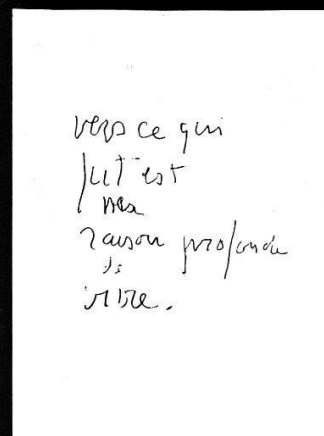 vers ce qui
fut est
ma
raison profonde
de
vivre.